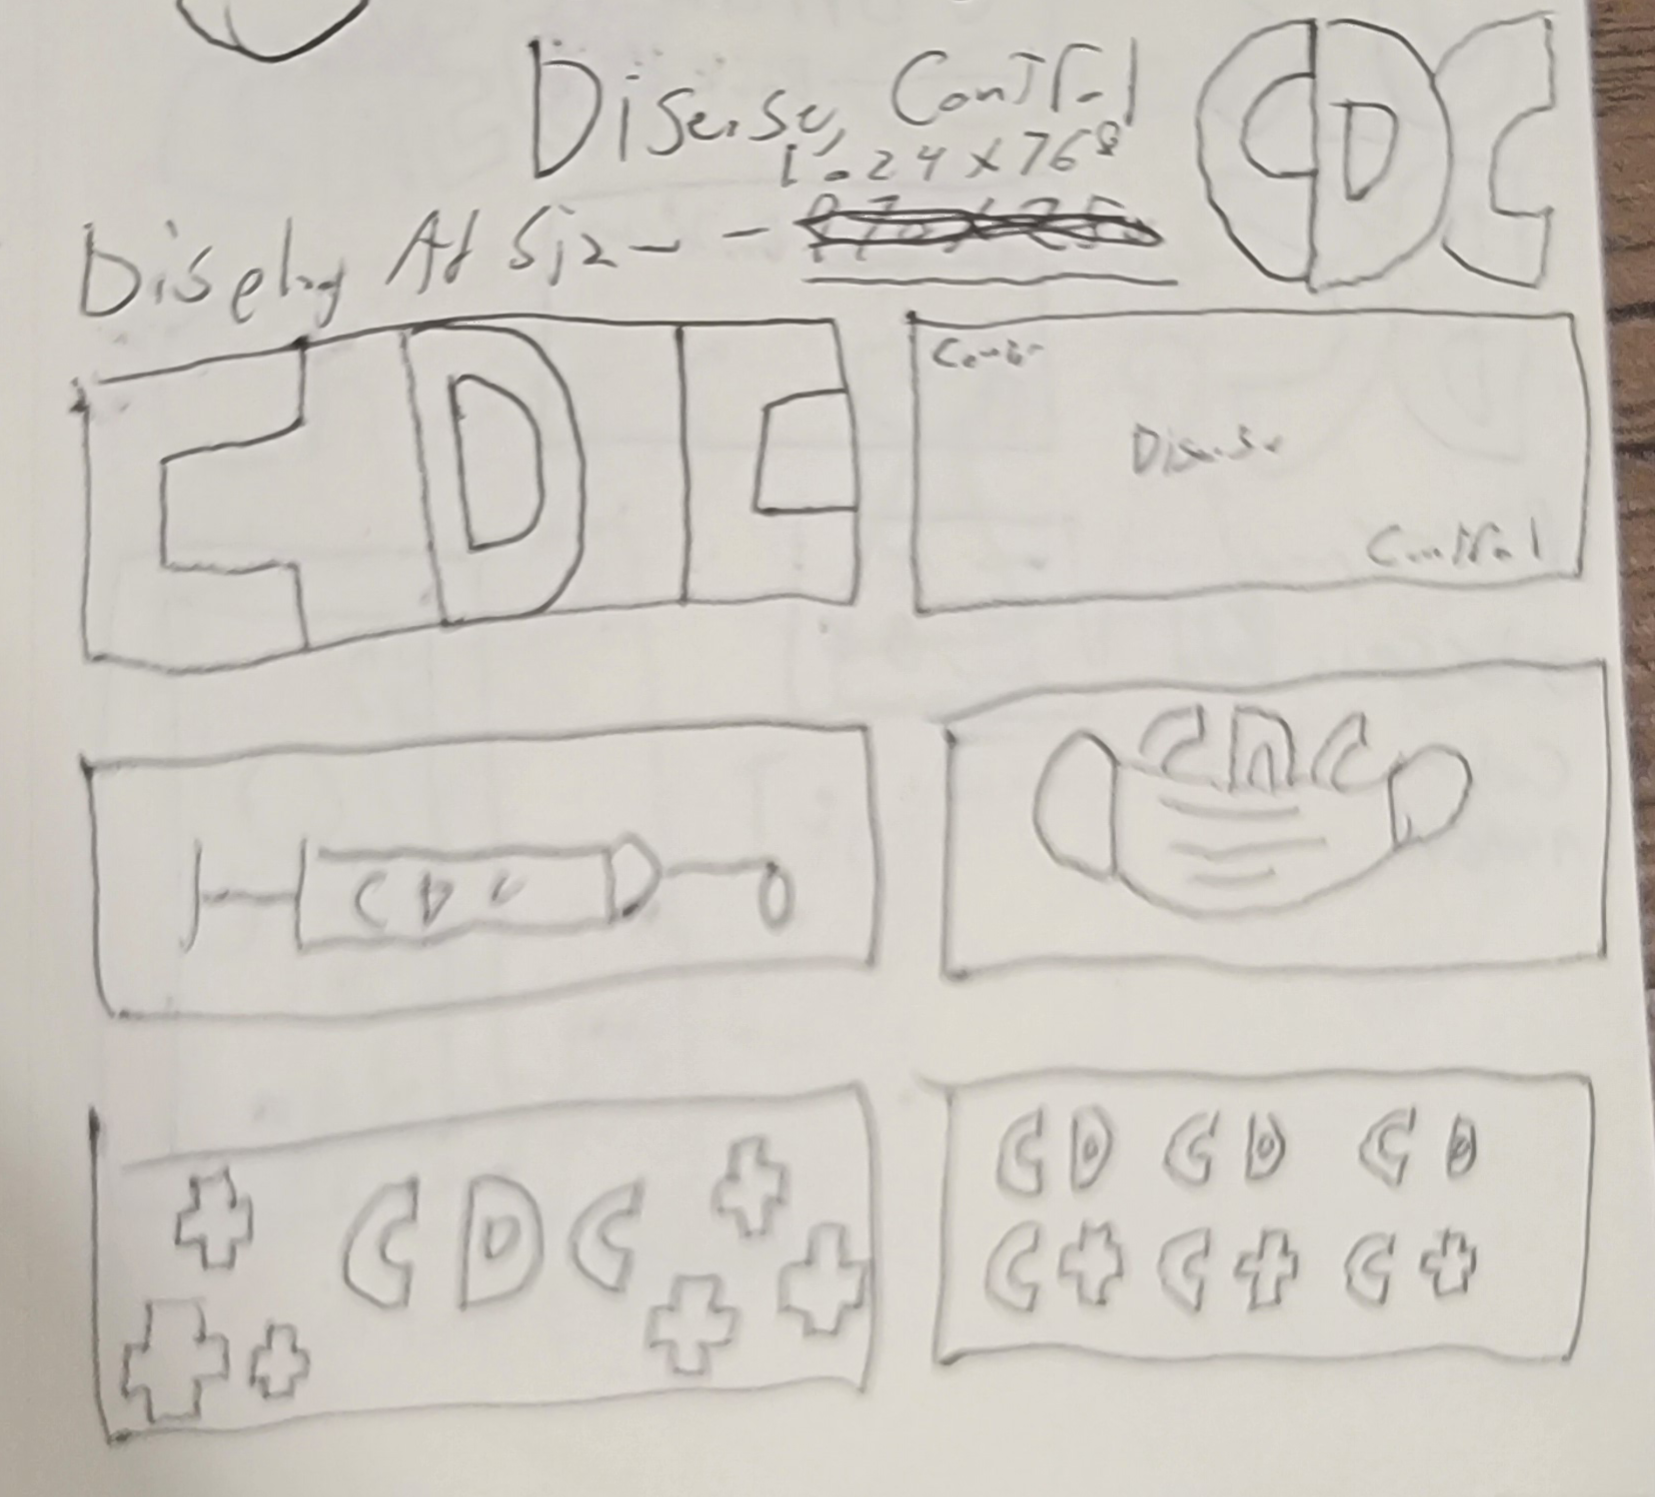 Disease, Control
CDC
1024x768
Display Ad Size -
CDC
Center
Disease
Control
CDC
CDC
CDC
CD CD CD
C C C